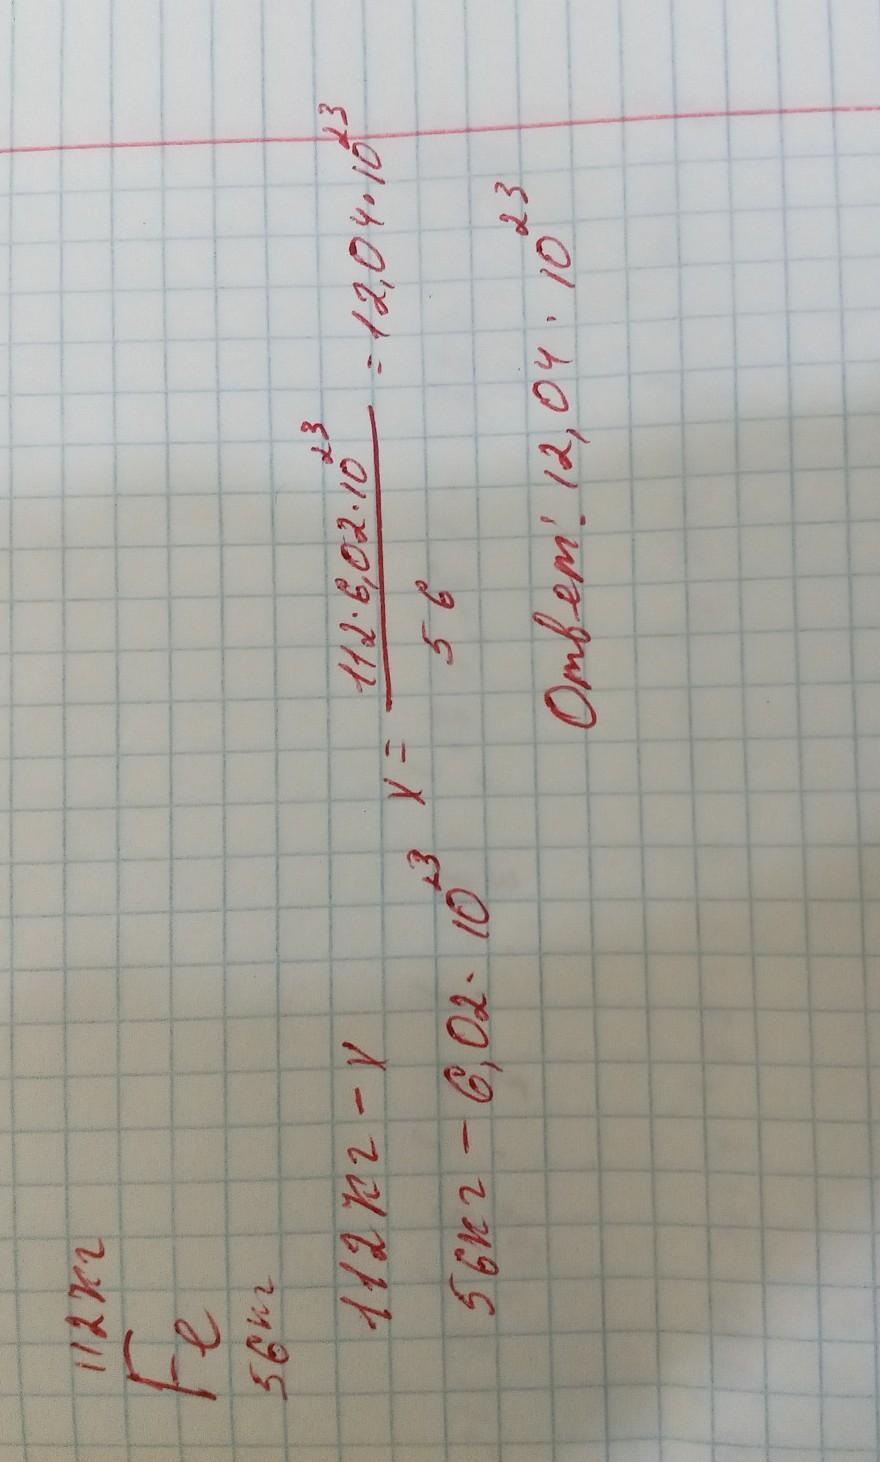 112кг
Fe
56кг
112кг - x
56кг - 6,02 · 10²³
x = 112·6,02·10²³ / 56 = 12,04·10²³
Ответ: 12,04 · 10²³